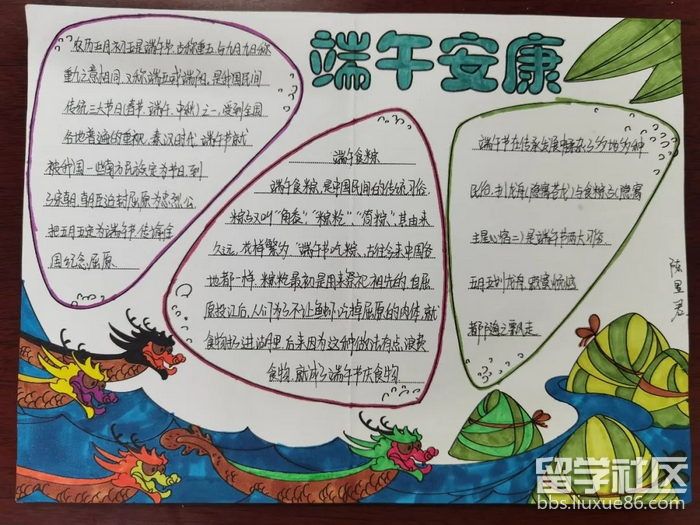 端午安康
农历五月初五是端午节,古称重五,与九月九日称
重九之意相同,又称端五或端阳,是我国民间
传统三大节日(春节 端午 中秋)之一,受到全国
各地普遍的重视,秦汉时代 端午节就
被我国一些南方民族定为节日,到
了宋朝,朝臣追封屈原为忠烈公
把五月五定为端午节,使海住
国纪念屈原
端午食粽
端午食粽,是中国民间的传统习俗,
粽子又叫"角黍""粽粒""筒粽",其由来
久远,花样繁为 端午节吃粽,古往今来中国各
地都一样,粽粒最初是用来祭祀祖先的,自屈
原投江后,人们为了不让鱼虾吃掉屈原的肉体,就
食物扔进湖里,后来因为这种做法有点浪费
食物,就成了端午节庆食物
端午节在传承发展中杂了多地多种
民俗,扒龙舟
与食粽
是端午节两大习俗
五月五划龙舟
都随之飘走
留学社区
bbs.liuxue86.com